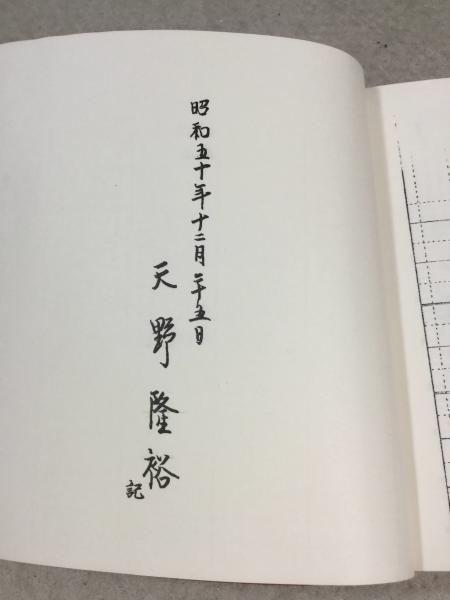 昭和五十年十二月二十五日
天野隆裕
記